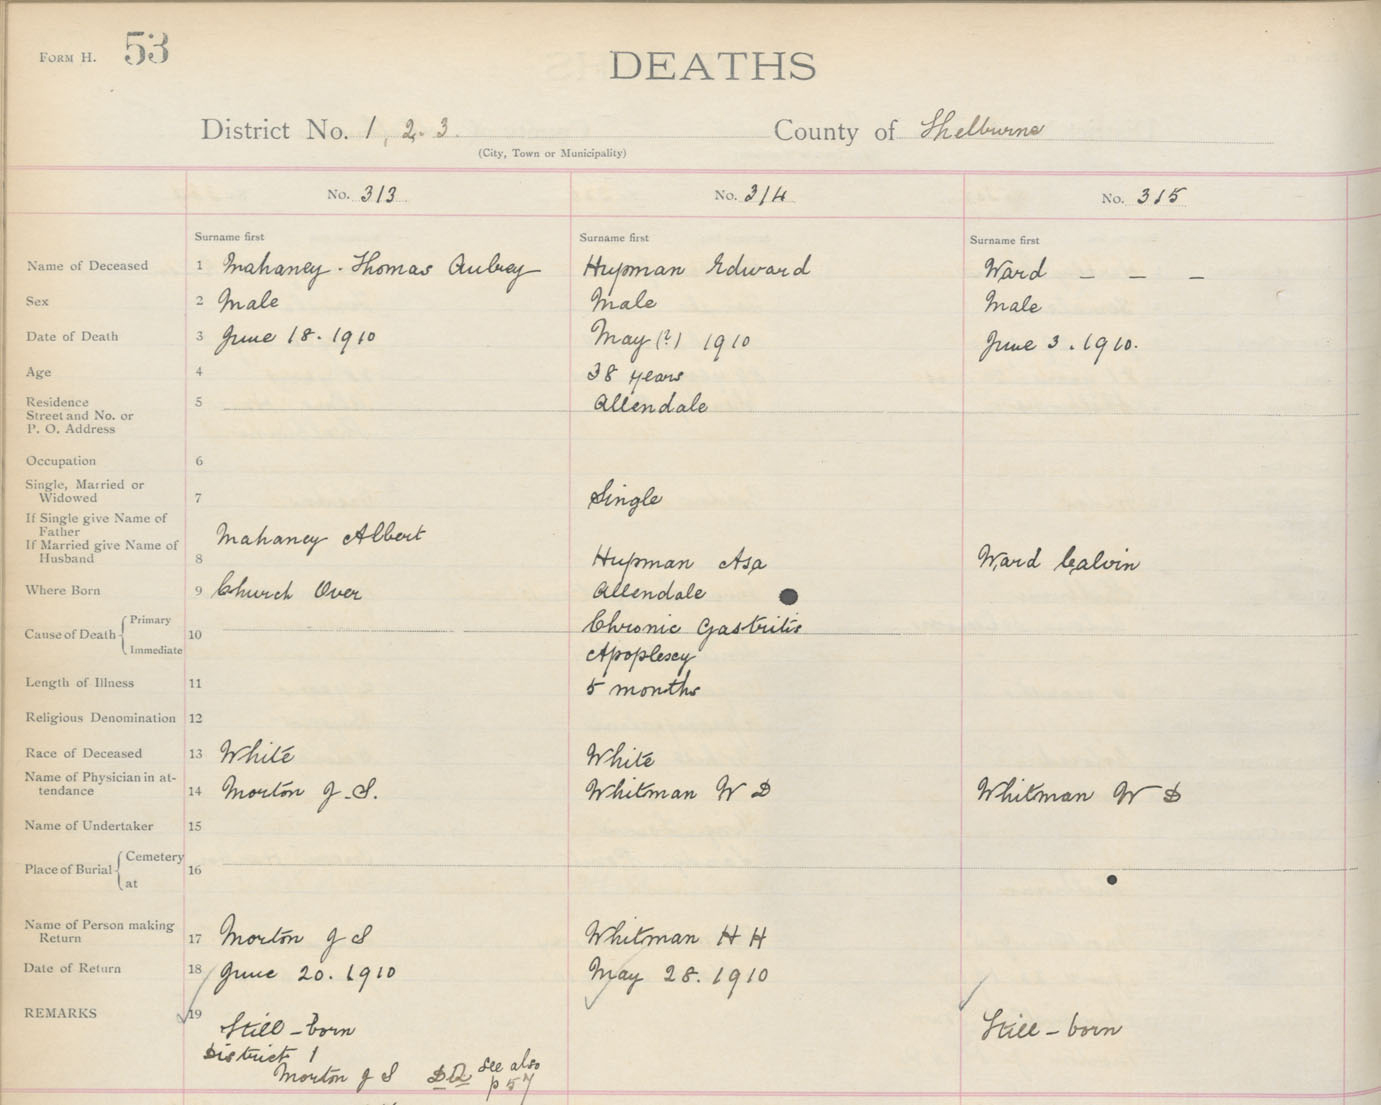 FORM H. 53
DEATHS
District No. 1, 2. 3. County of Shelburne
(City, Town or Municipality)
No. 313 No. 314 No. 315
Surname first Surname first Surname first
Name of Deceased 1 Mahaney - Thomas Aubrey Hupman Edward Ward – – –
Sex 2 Male Male Male
Date of Death 3 June 18. 1910 May (?) 1910 June 3. 1910.
Age 4 38 years
Residence 5 Allendale
Street and No. or
P. O. Address
Occupation 6
Single, Married or
Widowed 7 Single
If Single give Name of
Father Mahaney Albert
If Married give Name of
Husband 8 Hupman Asa Ward Calvin
Where Born 9 Church Over Allendale
Cause of Death { Primary 10 Chronic Gastritis
Immediate Apoplexy
Length of Illness 11 5 months
Religious Denomination 12
Race of Deceased 13 White White
Name of Physician in at-
tendance 14 Morton J. S. Whitman W D Whitman W D
Name of Undertaker 15
Place of Burial { Cemetery 16
at
Name of Person making
Return 17 Morton J S Whitman H H
Date of Return 18 June 20. 1910 May 28. 1910
REMARKS 19 Still-born Still-born
District 1
Morton J S D.R. See also
p 57